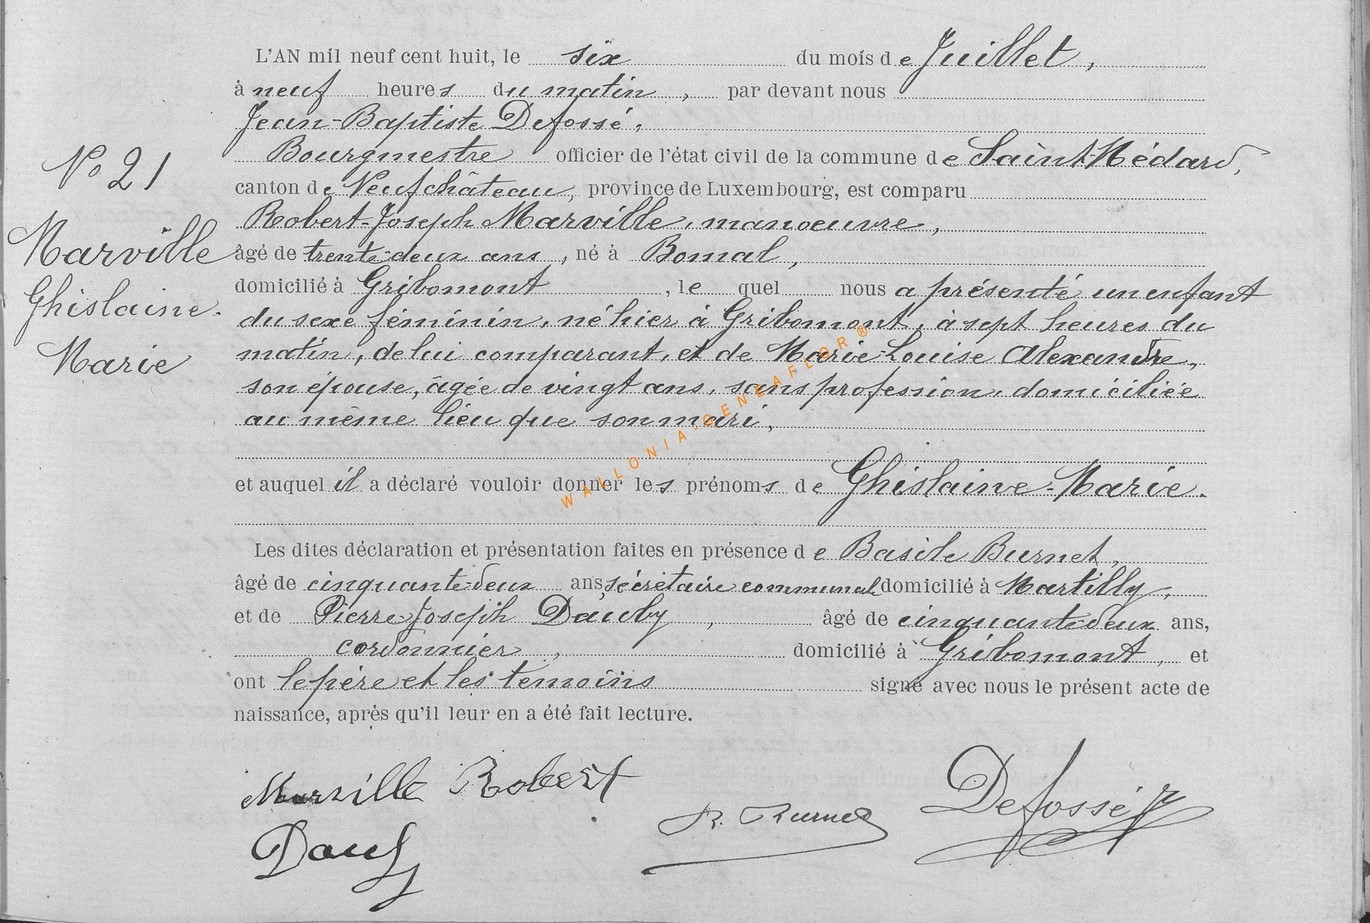 L'AN mil neuf cent huit, le six du mois de Juillet,
à neuf heures du matin, par devant nous
Jean-Baptiste Defossé,
Bourgmestre officier de l'état civil de la commune de Saint Médard,
canton de Neufchâteau, province de Luxembourg, est comparu
Robert-Joseph Marville, manoeuvre,
âgé de trente-deux ans, né à Bomal,
domicilié à Gribomont, le quel nous a présenté un enfant
du sexe féminin, né hier à Gribomont, à sept heures du
matin, de lui comparant, et de Marie-Louise Alexandre,
son épouse, âgée de vingt ans, sans profession, domiciliée
au même lieu que son mari,
et auquel il a déclaré vouloir donner les prénoms de Ghislaine-Marie.
Les dites déclaration et présentation faites en présence de Basile Burnet,
âgé de cinquante-deux ans, secrétaire communal domicilié à Martilly,
et de Pierre Joseph Dauby, âgé de cinquante-deux ans,
cordonnier, domicilié à Gribomont, et
ont le père et les témoins signé avec nous le présent acte de
naissance, après qu'il leur en a été fait lecture.
No 21
Marville
Ghislaine-
Marie
WALLONIA-GENEAFLOR®
Marville Robert
Dauby
B. Burnet
Defossé